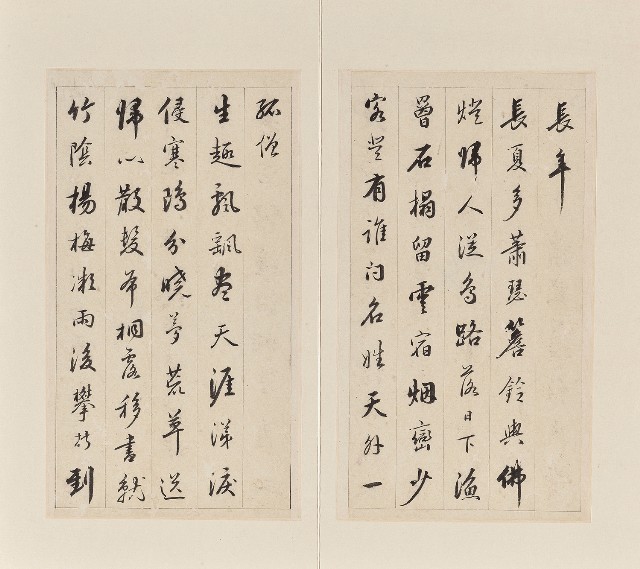 長年
長夏多蕭瑟簷鈴與佛
燈歸人從鳥路落日下漁
罾石榻留雲宿烟巒少
客登有誰問名姓天外一
孤僧
生趣飄飄盡天涯涕淚
侵寒鴉分曉夢荒草送
歸心散髮希桐露移書就
竹陰楊梅漸雨後攀折到